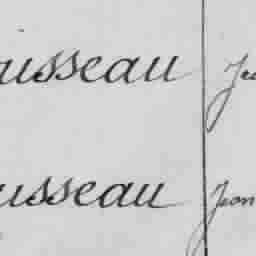 ousseau Je
ousseau Jean